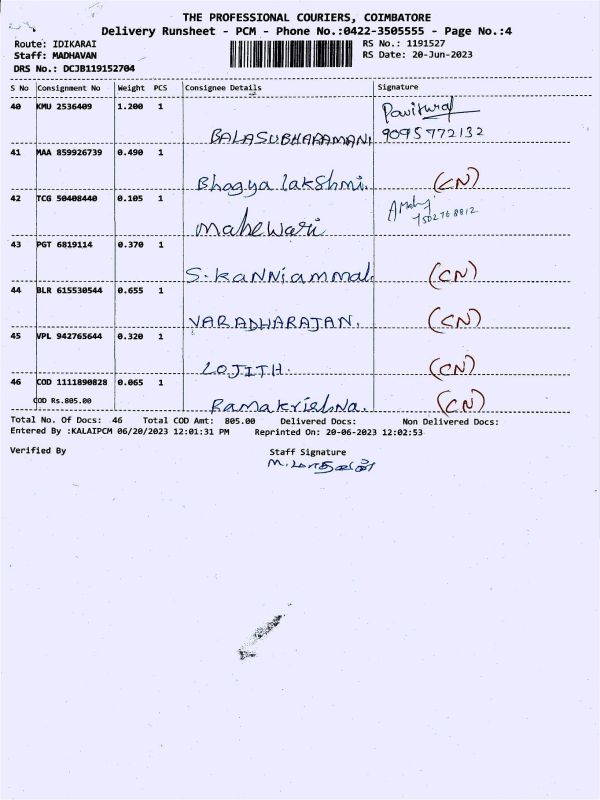 THE PROFESSIONAL COURIERS, COIMBATORE
Delivery Runsheet - PCM - Phone No.:0422-3505555 - Page No.:4
Route: IDIKARAI RS No.: 1191527
Staff: MADHAVAN RS Date: 20-Jun-2023
DRS No.: DCJB119152704
S No Consignment No Weight PCS Consignee Details Signature
40 KMU 2536409 1.200 1
BALASUBHARAMANI 9095772132
41 MAA 859926739 0.490 1
Bhagya lakshmi. (CN)
42 TCG 50408440 0.105 1
mahewari
43 PGT 6819114 0.370 1
S. KANNIAMMAL (CN)
44 BLR 615530544 0.655 1
VARADHARAJAN. (CN)
45 VPL 942765644 0.320 1
LOJITH. (CN)
46 COD 1111890828 0.065 1
COD Rs.805.00
Ramakrishna. (CN)
Total No. Of Docs: 46 Total COD Amt: 805.00 Delivered Docs: Non Delivered Docs:
Entered By :KALAIPCM 06/20/2023 12:01:31 PM Reprinted On: 20-06-2023 12:02:53
Verified By Staff Signature
M. மாதவன்